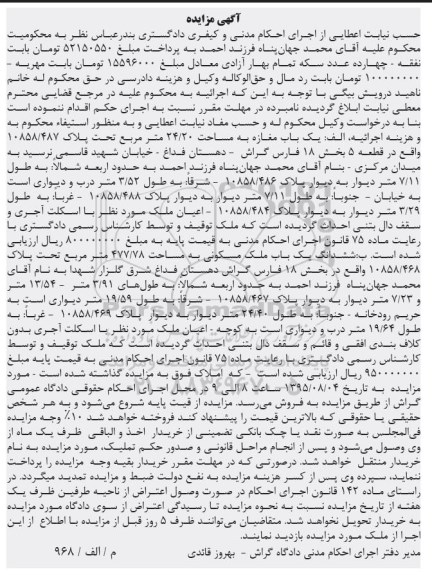 آگهی مزایده
حسب نیابت اعطایی از اجرای احکام مدنی و کیفری دادگستری بندرعباس نظر به محکومیت
محکوم علیه آقای محمد جهان‌پناه فرزند احمد به پرداخت مبلغ ۵۲۱۵۰۵۵۰ تومان بابت
نفقه - چهارده عدد سکه تمام بهار آزادی معادل مبلغ ۱۵۵۹۶۰۰۰ تومان بابت مهریه -
۱۰۰۰۰۰۰۰۰ تومان بابت رد مال و حق‌الوکاله وکیل و هزینه دادرسی در حق محکوم له خانم
ناهید درویش بیگی با توجه به این که اجرائیه به محکوم علیه در مرجع قضایی محترم
معطی نیابت ابلاغ گردیده نامبرده در مهلت مقرر نسبت به اجرای حکم اقدام ننموده است
بنا به درخواست وکیل محکوم له و حسب مفاد نیابت اعطایی و به منظور استیفاء محکوم به
و هزینه اجرائیه، الف: یک باب مغازه به مساحت ۲۴/۲۰ متر مربع تحت پلاک ۱۰۸۵۸/۴۸۷
واقع در قطعه ۵ بخش ۱۸ فارس گراش - دهستان فداغ - خیابان شهید قاسمی نرسید به
میدان مرکزی - بنام آقای محمد جهان‌پناه فرزند احمد به حدود اربعه شمالاً: به طول
۷/۱۱ متر دیوار به دیوار پلاک ۱۰۸۵۸/۴۸۶ - شرقاً: به طول ۳/۵۲ متر درب و دیواری است
به خیابان - جنوباً: به طول ۷/۱۱ متر دیوار به دیوار پلاک ۱۰۸۵۸/۴۸۸ - غرباً: به طول
۳/۲۹ متر دیوار به دیوار پلاک ۱۰۸۵۸/۴۸۴ - اعیان ملک مورد نظر با اسکلت آجری و
سقف دال بتنی احداث گردیده است که ملک توقیف و توسط کارشناس رسمی دادگستری با
رعایت ماده ۷۵ قانون اجرای احکام مدنی به قیمت پایه به مبلغ ریال ارزیابی
شده است. ب: ششدانگ یک باب ملک مسکونی به مساحت ۴۷۷/۷۸ متر مربع تحت پلاک
۱۰۸۵۸/۴۶۸ واقع در بخش ۱۸ فارس گراش دهستان فداغ شرق گلزار شهدا به نام آقای
محمد جهان‌پناه فرزند احمد به حدود اربعه شمالاً: به طول‌های ۳/۹۱ متر - ۱۳/۵۴ متر
و ۷/۲۳ متر دیوار به دیوار پلاک ۱۰۸۵۸/۴۶۷ - شرقاً: به طول ۱۹/۵۹ متر دیواری است به
حریم رودخانه - جنوباً: به طول ۲۴/۴۰ متر دیوار به دیوار پلاک ۱۰۸۵۸/۴۶۹ - غرباً: به
طول ۱۹/۶۴ متر درب و دیواری است به کوچه - اعیان ملک مورد نظر با اسکلت آجری بدون
کلاف بندی افقی و قائم و سقف دال بتنی احداث گردیده است که ملک توقیف و توسط
کارشناس رسمی دادگستری با رعایت ماده ۷۵ قانون اجرای احکام مدنی به قیمت پایه مبلغ
۹۵۰۰۰۰۰۰۰ ریال ارزیابی شده است . که املاک فوق به مزایده گذاشته شده است - مورد
مزایده به تاریخ ۱۳۹۵/۰۸/۰۴ ساعت ۸ الی ۰۹ در محل اجرای احکام حقوقی دادگاه عمومی
گراش از طریق مزایده به فروش می‌رسد. مزایده از قیمت پایه شروع می‌شود و به هر شخص
حقیقی یا حقوقی که بالاترین قیمت را پیشنهاد کند فروخته خواهد شد ۱۰٪ وجه مزایده
فی‌المجلس به صورت نقد یا چک بانکی تضمینی از خریدار اخذ و الباقی ظرف یک ماه از
وی وصول می‌شود و پس از انجام مراحل قانونی و صدور حکم تملیک، مورد مزایده به نام
خریدار منتقل خواهد شد. درصورتی که در مهلت مقرر خریدار بقیه وجه مزایده را پرداخت
ننماید، سپرده وی پس از کسر هزینه مزایده به نفع دولت ضبط و مزایده تمدید میگردد. در
راستای ماده ۱۴۲ قانون اجرای احکام در صورت وصول اعتراض از ناحیه طرفین ظرف یک
هفته از تاریخ مزایده نسبت به نحوه مزایده تا رسیدگی اعتراض از سوی دادگاه مورد مزایده
به خریدار تحویل نخواهد شد. متقاضیان می‌توانند ظرف ۵ روز قبل از مزایده با اطلاع از این
اجرا از ملک مورد مزایده بازدید نمایند.
مدیر دفتر اجرای احکام مدنی دادگاه گراش - بهروز قائدی
م / الف / ۹۶۸